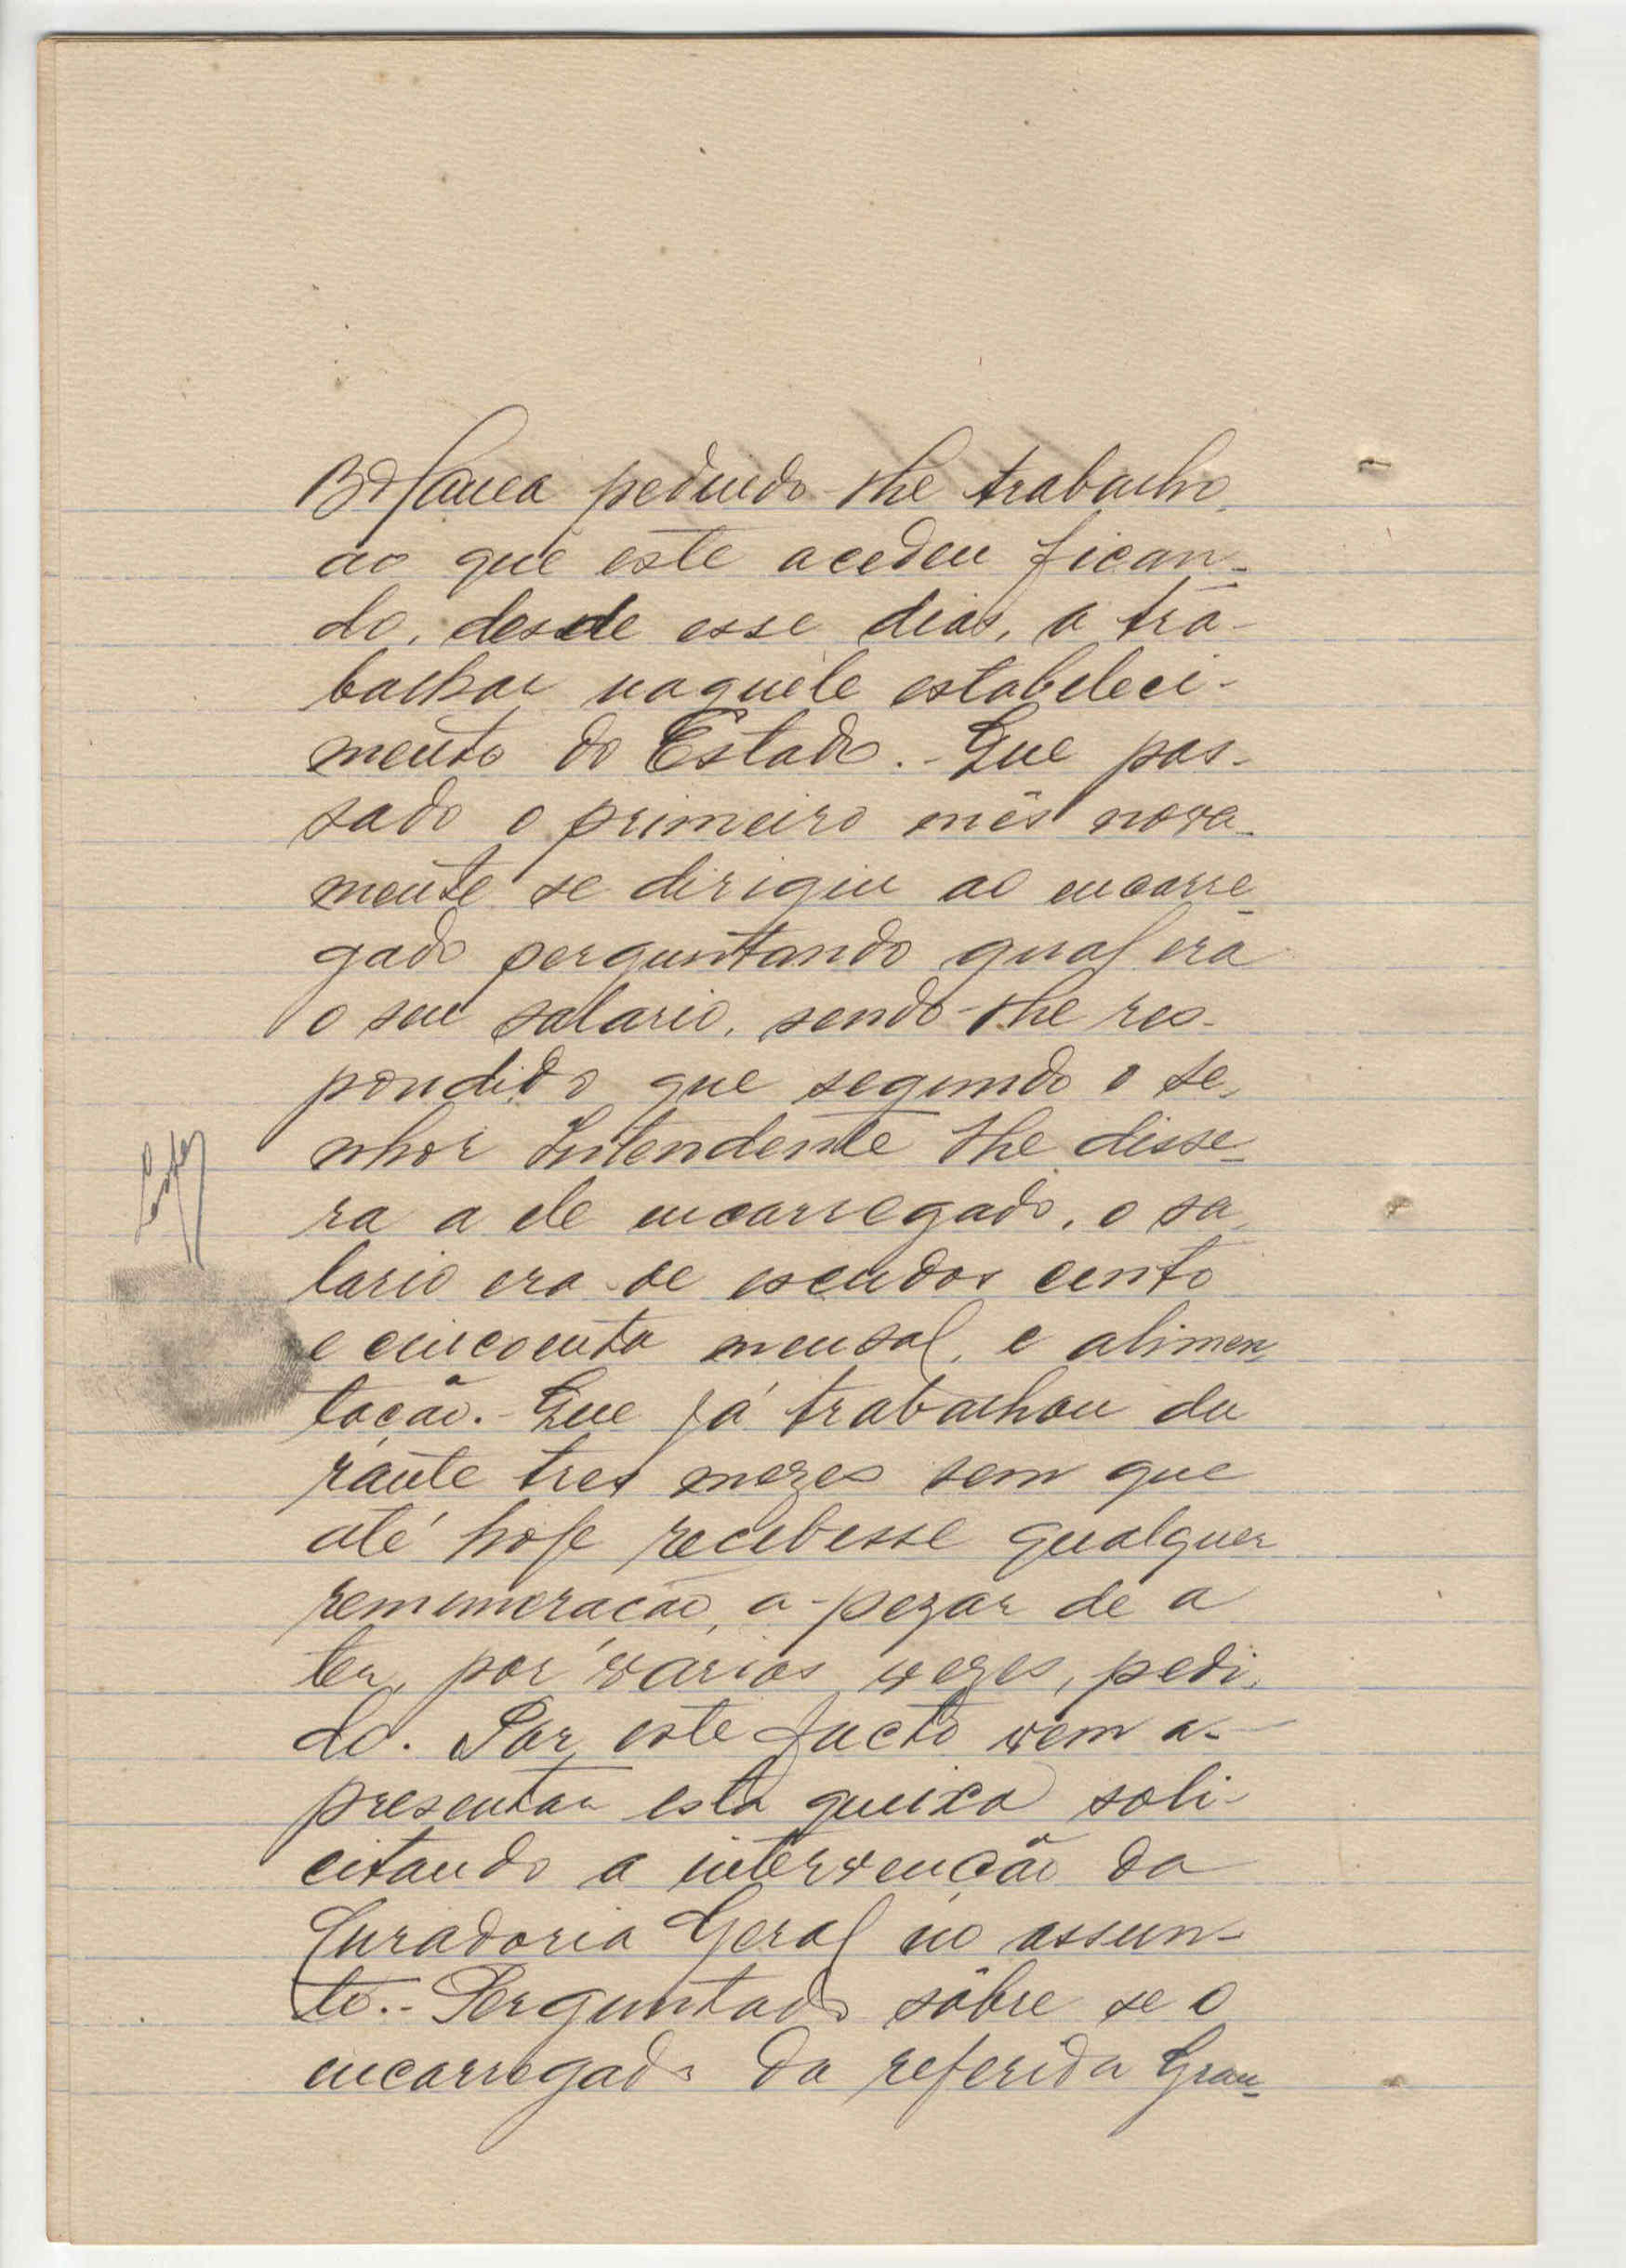 pedindo-lhe trabalho,
ao que este acedeu fican-
do, desde esse dias, a tra-
balhar naquele estabeleci-
mento do Estado.- Que pas-
sado o primeiro mês nova-
mente se dirigiu ao encarre-
gado perguntando qual era
o seu salario, sendo-lhe res-
pondido que segundo o se-
nhor Intendente lhe disse-
ra a ele encarregado, o sa-
lario era de escudos cento
e cincoenta mensal, e alimen-
tação.- Que já trabalhou du
rante tres mezes sem que
até hoje recebesse qualquer
remuneração, a-pezar de a
ter, por varias vezes, pedi-
do. Por este facto vem a-
presentar esta queixa soli-
citando a intervenção da
Curadoria Geral no assun-
to.- Perguntado sôbre se o
encarregado da referida Gran-